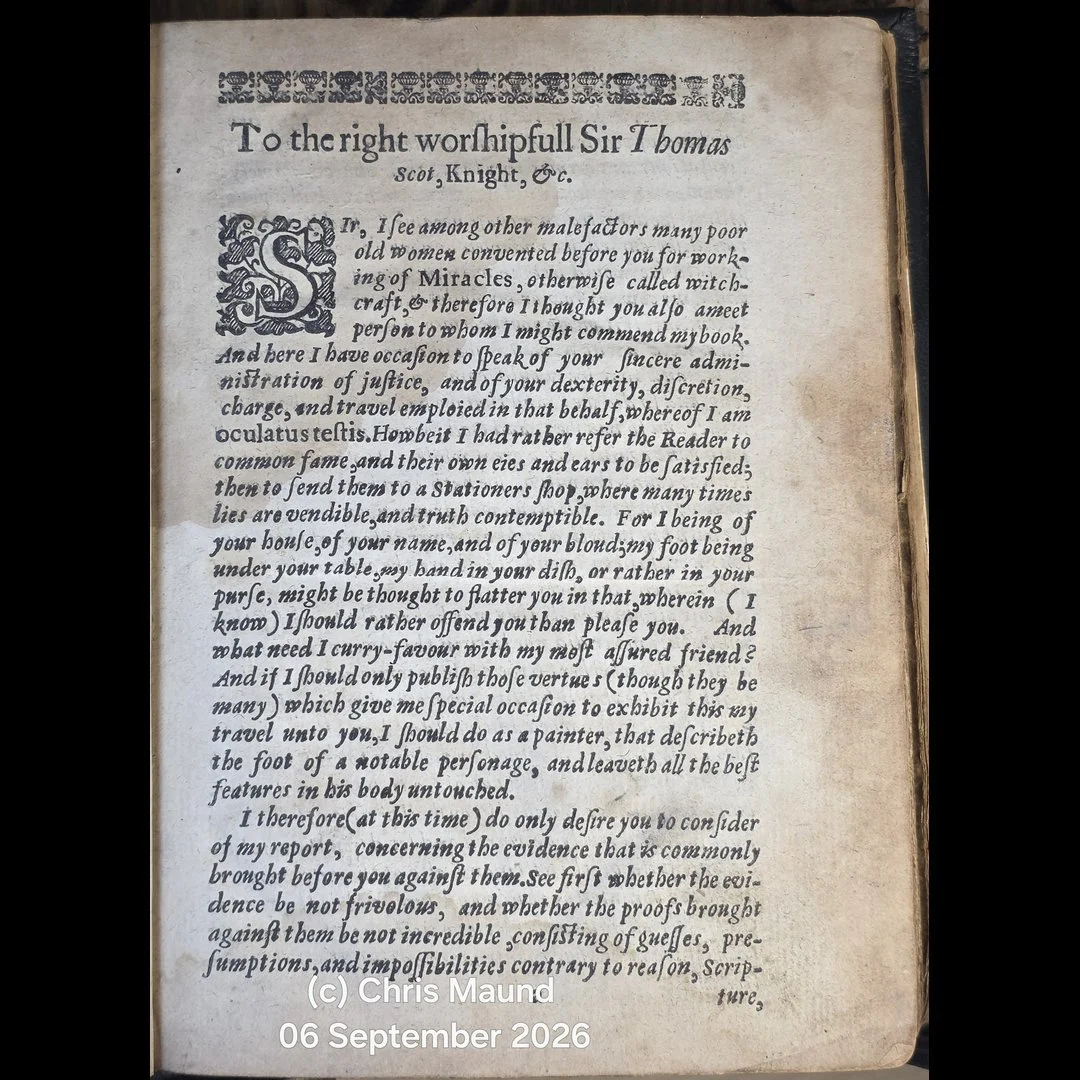 To the right worſhipfull Sir Thomas
Scot, Knight, &c.
SIr, I ſee among other malefactors many poor
old women convented before you for work-
ing of Miracles, otherwiſe called witch-
craft, & therefore I thought you alſo a meet
perſon to whom I might commend my book.
And here I have occaſion to ſpeak of your ſincere admi-
niſtration of juſtice, and of your dexterity, diſcretion,
charge, and travel emploied in that behalf, whereof I am
oculatus teſtis. Howbeit I had rather refer the Reader to
common fame, and their own eies and ears to be ſatisfied;
then to ſend them to a Stationers ſhop, where many times
lies are vendible, and truth contemptible. For I being of
your houſe, of your name, and of your bloud; my foot being
under your table, my hand in your diſh, or rather in your
purſe, might be thought to flatter you in that, wherein (I
know) I ſhould rather offend you than pleaſe you. And
what need I curry-favour with my moſt aſſured friend?
And if I ſhould only publiſh thoſe vertues (though they be
many) which give me ſpecial occaſion to exhibit this my
travel unto you, I ſhould do as a painter, that deſcribeth
the foot of a notable perſonage, and leaveth all the beſt
features in his body untouched.
I therefore (at this time) do only deſire you to conſider
of my report, concerning the evidence that is commonly
brought before you againſt them. See firſt whether the evi-
dence be not frivolous, and whether the proofs brought
againſt them be not incredible, conſiſting of gueſſes, pre-
ſumptions, and impoſſibilities contrary to reaſon, Scrip-
ture,
(c) Chris Maund
06 September 2026